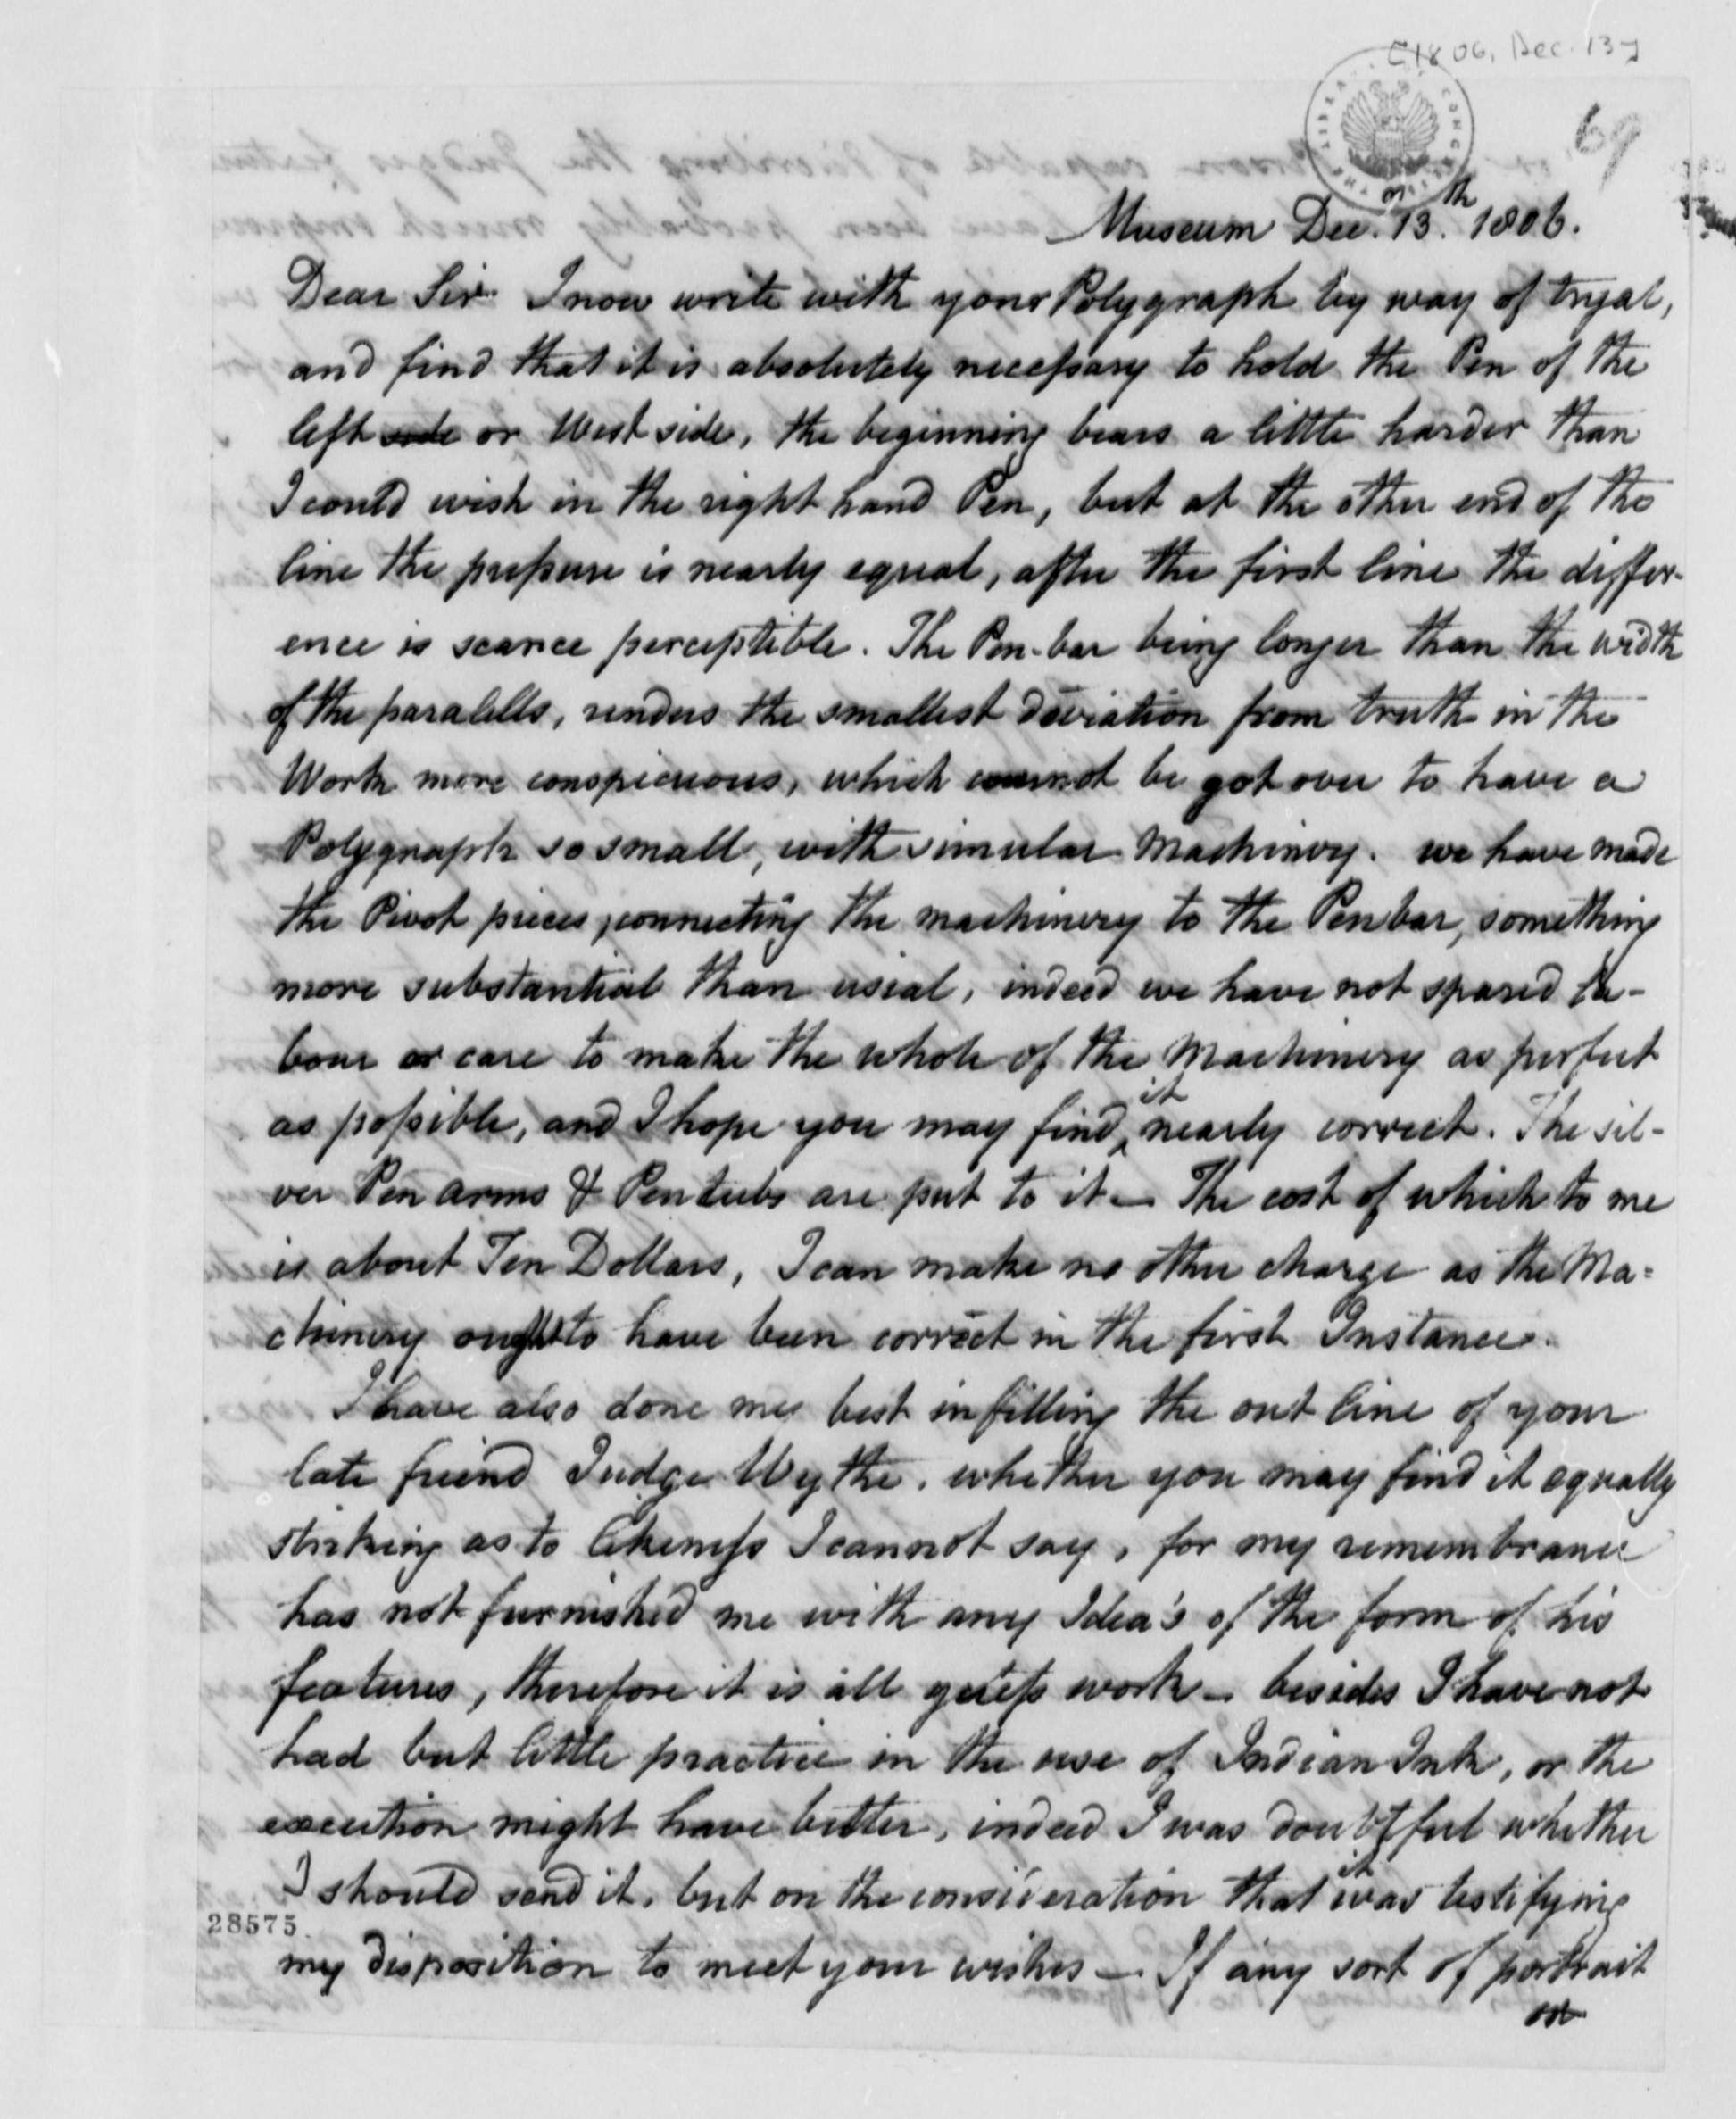 [1806, Dec. 13]
69
Museum Dec. 13th. 1806.
Dear Sir. I now write with your Polygraph by way of tryal,
and find that it is absolutely necessary to hold the Pen of the
left side or West side, the beginning bears a little harder than
I could wish in the right hand Pen, but at the other end of the
line the pressure is nearly equal, after the first line the differ-
ence is scarce perceptible. The Pen-bar being longer than the width
of the paralells, renders the smallest deviation from truth in the
Work more conspicuous, which cannot be got over to have a
Polygraph so small, with simular Machinery. we have made
the Pivot pieces, connecting the machinery to the Penbar, something
more substantial than usial, indeed we have not spared la-
bour or care to make the whole of the Machinery as perfect
as possible, and I hope you may find it nearly correct. The sil-
ver Pen arms & Pentubs are put to it — The cost of which to me
is about Ten Dollars, I can make no other charge as the Ma=
chinery ought to have been correct in the first Instance.
I have also done my best in filling the out line of your
late friend Judge Wythe. whether you may find it equally
striking as to likeness I cannot say, for my remembrance
has not furnished me with any Idea's of the form of his
features, therefore it is all guess work — besides I have not
had but little practice in the use of Indian Ink, or the
execution might have better, indeed I was doubtful whether
I should send it, but on the consideration that it was testifying
28575
my disposition to meet your wishes — If any sort of portrait
or